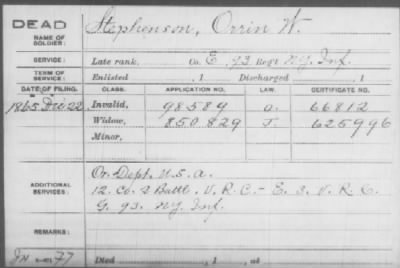 DEAD
NAME OF SOLDIER: Stephenson, Orrin W.
SERVICE: Late rank, Co. E, 93 Reg't N.Y. Inf.
TERM OF SERVICE: Enlisted , 1 Discharged , 1
DATE OF FILING. CLASS. APPLICATION NO. LAW. CERTIFICATE NO.
1865 Dec 22 Invalid, 98589 a. 66812
Widow, 850.829 J. 625996
Minor,
ADDITIONAL SERVICES: Or. Dept. U.S.A.
12. Co. 2 Batt. V.R.C. - E. 3. V.R.C.
G. 93. N.Y. Inf.
REMARKS:
77 Died , 1 , at